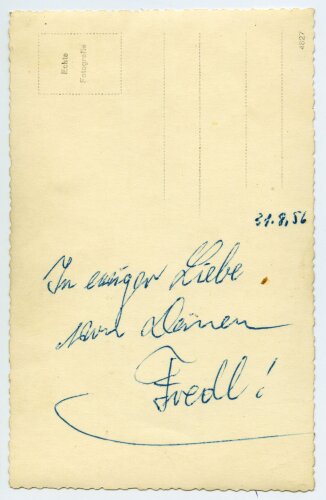 Echte
Fotografie
4827
31.8.56
In ewiger Liebe
von Deinem
Fredl!